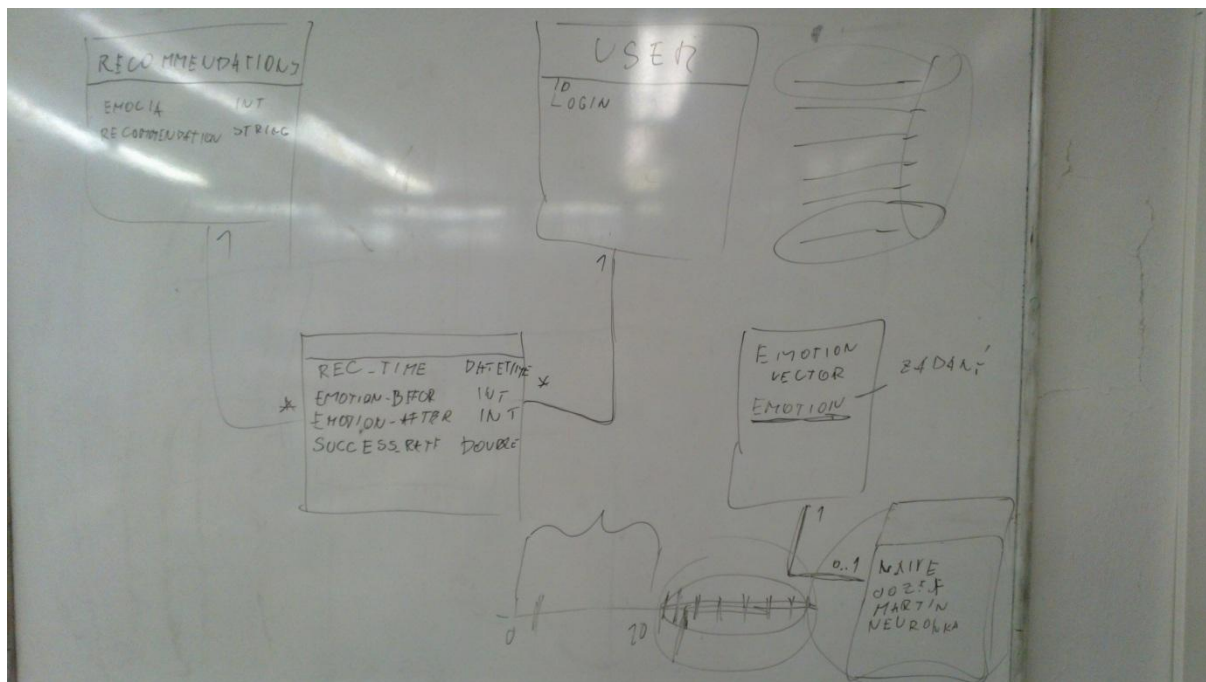 RECOMMENDATIONS
EMOCIA INT
RECOMMENDATION STRING
USER
ID
LOGIN
1
1
REC_TIME DATETIME
EMOTION-BEFOR INT
EMOTION-AFTER INT
SUCCESS_RATE DOUBLE
*
*
EMOTION
VECTOR
EMOTION
ZADANÍ
1
0..1
NAIVE
MARTIN
NEURONKA
0
20